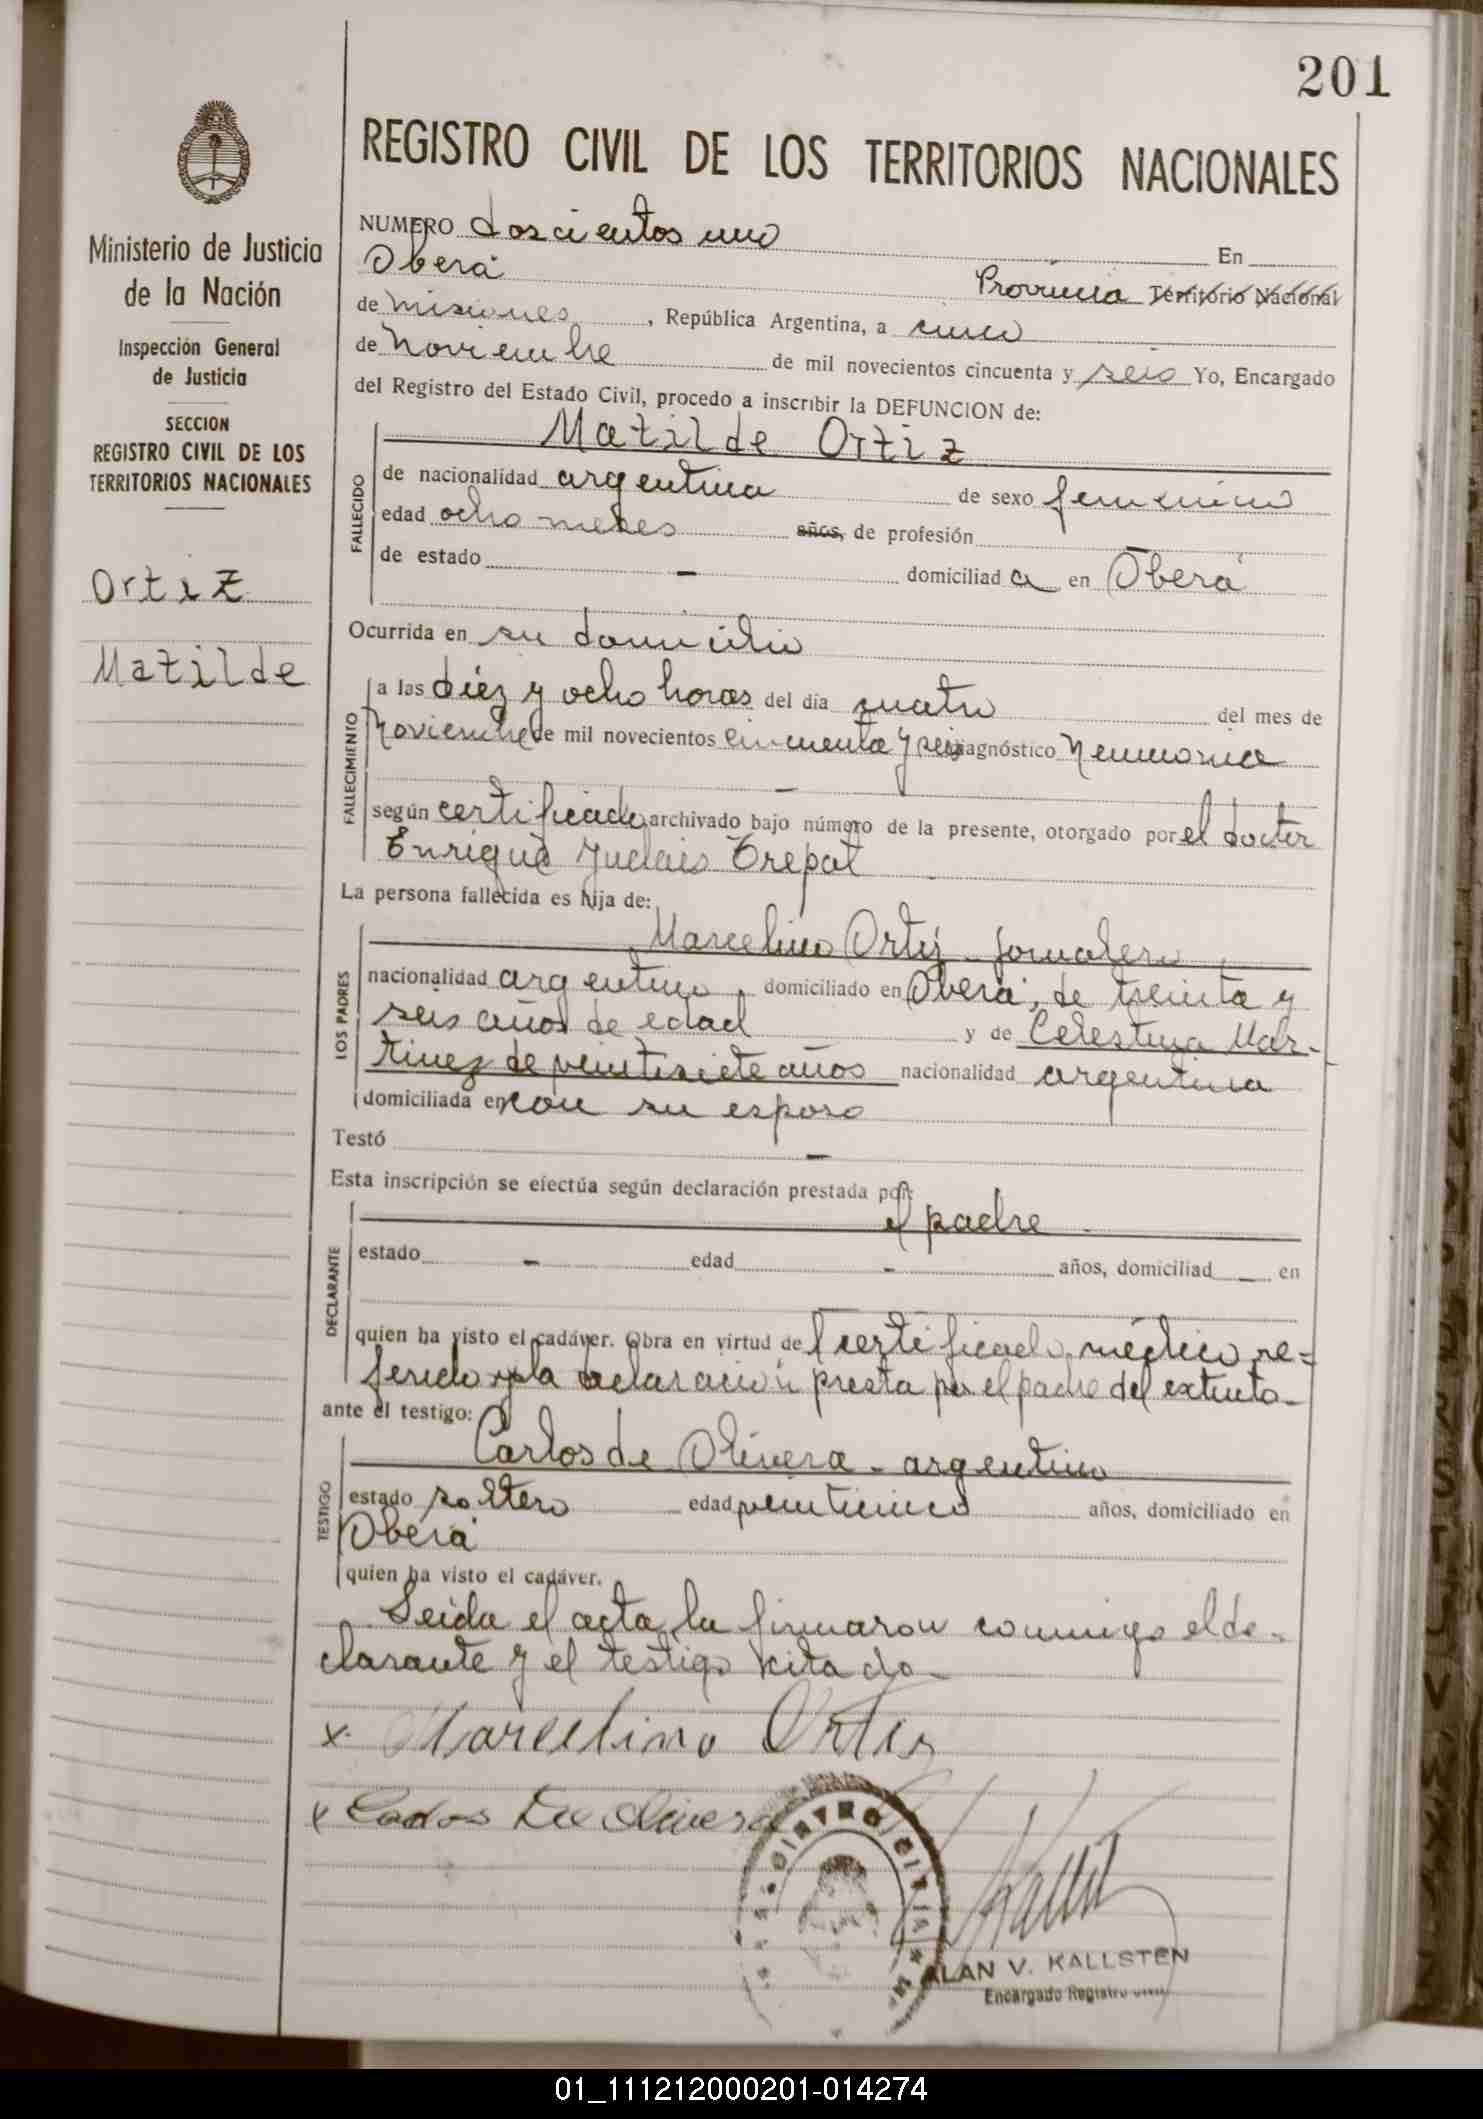 201
REGISTRO CIVIL DE LOS TERRITORIOS NACIONALES
Ministerio de Justicia
de la Nación
Inspección General
de Justicia
SECCION
REGISTRO CIVIL DE LOS
TERRITORIOS NACIONALES
Ortiz
Matilde
NUMERO doscientos uno En
Oberá Provincia Territorio Nacional
de Misiones, República Argentina, a cinco
de Noviembre de mil novecientos cincuenta y seis Yo, Encargado
del Registro del Estado Civil, procedo a inscribir la DEFUNCION de:
FALLECIDO
Matilde Ortiz
de nacionalidad argentina de sexo femenino
edad ocho meses años, de profesión
de estado - domiciliada en Oberá
Ocurrida en su domicilio
FALLECIMIENTO
a las diez y ocho horas del día cuatro del mes de
Noviembre de mil novecientos cincuenta y seis diagnóstico Neumonia
-
según certificado archivado bajo número de la presente, otorgado por el doctor
Enrique Trepat
La persona fallecida es hija de:
LOS PADRES
Marcelino Ortiz - jornalero
nacionalidad argentino, domiciliado en Oberá, de treinta y
seis años de edad y de Celestina Mar-
tinez de veintisiete años nacionalidad argentina
domiciliada en con su esposo
Testó -
Esta inscripción se efectúa según declaración prestada por:
DECLARANTE
el padre
estado - edad - años, domiciliad - en
quien ha visto el cadáver. Obra en virtud del certificado médico re-
ferido y la declaración presta por el padre del extinto-
ante el testigo:
TESTIGO
Carlos de Olivera - argentino
estado soltero edad veinticinco años, domiciliado en
Oberá
quien ha visto el cadáver.
Leida el acta, la firmaron conmigo el de-
clarante y el testigo citado-
x. Marcelino Ortiz
x Carlos De Olivera
REGISTRO CIVIL
ALAN V. KALLSTEN
Encargado Registro Civil
01_111212000201-014274